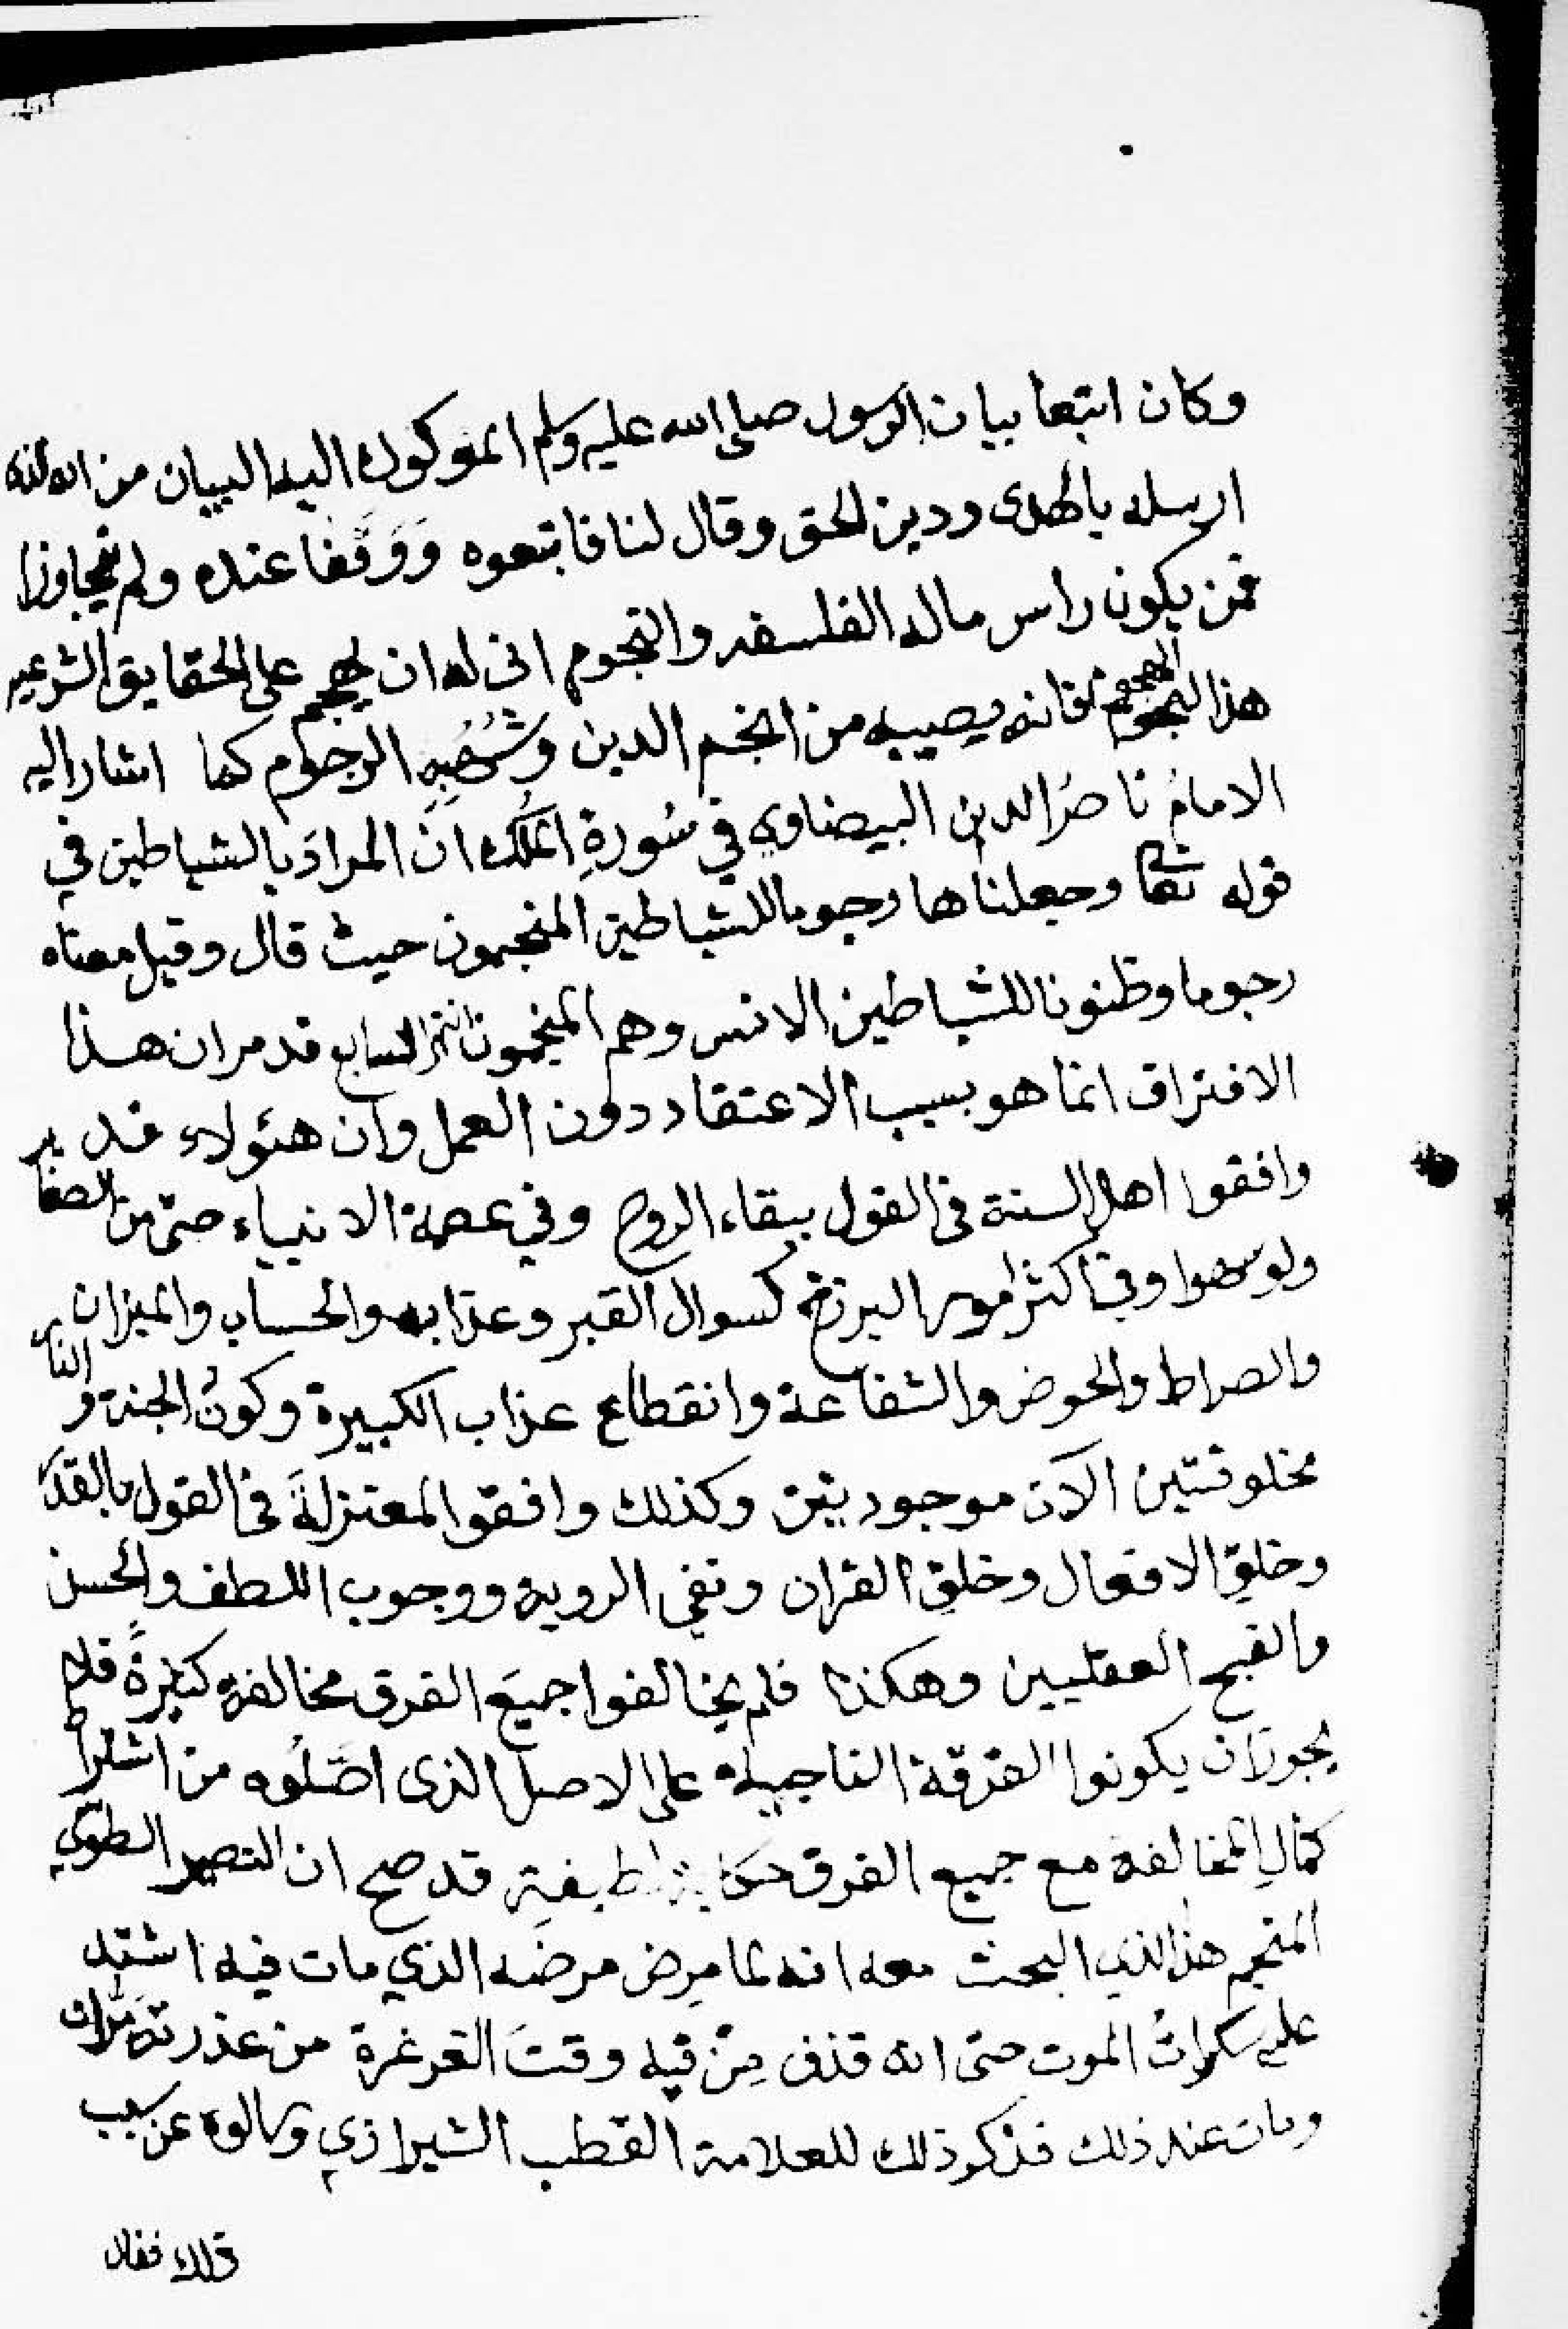 وكان ابتعا بيان الرسول صلى الله عليه وسلم الموكول اليه البيان من الله لانه
ارسله بالهدى ودين الحق وقال لنا فاتبعوه ووقفا عنده ولم يتجاوزا
فمن يكون راس ماله الفلسفه والنجوم انى له ان يهجم على الحقايق الشرعيه
هذا الهجوم فانه يصيبه من انجم الدين وشهبه الرجوم كما اشار اليه
الامام ناصر الدين البيضاوي في سورة الملك ان المراد بالشياطين في
قوله تعالى وجعلناها رجوما للشياطين المنجمون حيث قال وقيل معناه
رجوما وظنونا للشياطين الانس وهم المنجمون السابع قد مر ان هذا
الافتراق انما هو بسبب الاعتقاد دون العمل وان هئولاء قد
وافقوا اهل السنة فى القول ببقاء الروح وفي عصمة الانبياء حتى من الصغاير
ولو سهوا وفي اكثر امور البرزخ كسوال القبر وعذابه والحساب والميزان
والصراط والحوض والشفاعة وانقطاع عذاب الكبيرة وكون الجنة والنار
مخلوقتين الآن موجودتين وكذلك وافقوا المعتزلة فى القول بالقدر
وخلق الافعال وخلق القران ونفي الروية ووجوب اللطف والحسن
والقبح العقليين وهكذا فلم يخالفوا جميع الفرق مخالفة كثيرة فلا
يجوز ان يكونوا الفرقة الناجية على الاصل الذى اصلوه من اشتراط
كمال المخالفة مع جميع الفرق حكاية لطيفة قد صح ان النصير الطوسي
المنجم هذا الذي البحث معه انه لما مرض مرضه الذي مات فيه اشتد
عليه سكرات الموت حتى انه قذف من فيه وقت الغرغرة من عذرته مرات
ومات عند ذلك فذكر ذلك للعلامة القطب الشيرازي وسالوه عن سبب
ذلك فقال